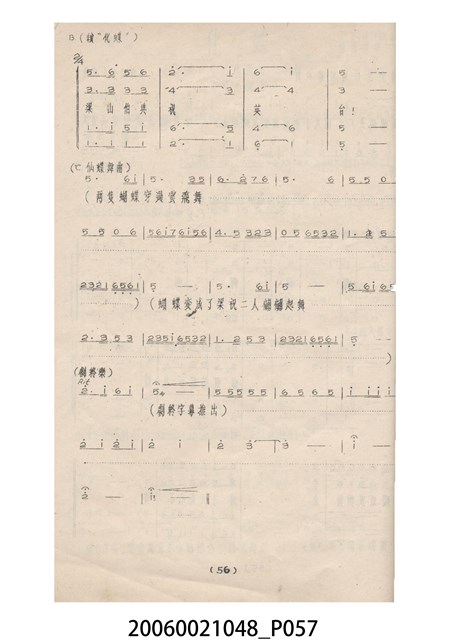 B (續“化蝶”)
2/4
5. 6 5 6 | 2. i | 6 i | 5 —
3. 3 3 3 | 4 4 | 4 3 | 3 —
梁山伯共 祝 英 台!
1. i 5 i | 6. 5 | 4 4 | 5 —
1. 1 5 1 | 2 | 2 | 1 —
(C. 仙蝶舞曲)
5. 6i | 5. 35 | 6. 276 | 5. 6 | 5 5 0
(兩隻蝴蝶穿過雲飛舞
5 5 0 6 | 56i76i56 | 4. 5323 | 056532 | 1. 2 5
23216561 | 5 — | 5. 6i | 5 — | 5 6i6
) (蝴蝶變成了梁祝二人翩翩起舞
2. 3 5 3 | 235i6532 | 1. 253 | 23216561 | 5 —
)
(劇終樂)
Rit
2. i 6 i | 5 — | 5 5 5 5 5 | 6 5 6 5 | i i i i
(劇終字幕推出)
2 i 2 i | 2 i | 2 3 | 3 — | i —
2 — | i —
(56)
20060021048_P057